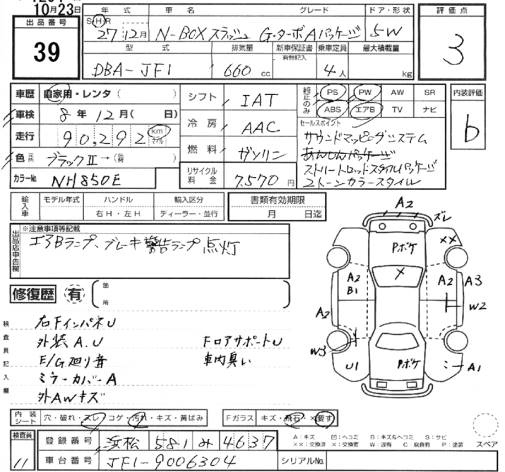 10月23日
出品番号
39
年式
車名
グレード
ドア・形状
S H R
27年12月
N-BOXスラッシュ
G・ターボAパッケージ
5W
型式
排気量
新車保証書
乗車定員
最大積載量
有無記入
DBA-JF1
660cc
4人
kg
評価点
3
内装評価
b
車歴
自家用・レンタ(
)
車検
8年12月(
日)
走行
90,292
km
色
ブラックⅡ→(
)
カラーNo
NH850E
シフト
IAT
冷房
AAC
燃料
ガソリン
リサイクル料金
7,570円
純正のみ
PS
PW
AW
SR
ABS
エアB
TV
ナビ
セールスポイント
サウンドマッピングシステム
あんしんパッケージ
ストリートロッドスタイルパッケージ
2トーンカラースタイル
輸入車
モデル年式
ハンドル
輸入区分
右H・左H
ディーラー・並行
書類有効期限
月
日迄
※注意事項等記載
出品店申告欄
エアBランプ、ブレーキ警告ランプ点灯
修復歴
有
箇所
検査員記入欄
右FインパネU
外装A.U
E/G廻り音
ミラーカバーA
外AWキズ
FロアサポートU
車内臭い
A2
ズレ
Pボケ
××
×
A2
B1
A2
A2
A3
W2
W3
U1
Pボケ
A1
内装シート
穴・破れ・スレ・コゲ・汚れ・キズ・黄ばみ
Fガラス
キズ・飛石・×要す
スペア
検査員
11
登録番号
浜松
581
み
4637
車台番号
JF1-9006304
シリアルNo.